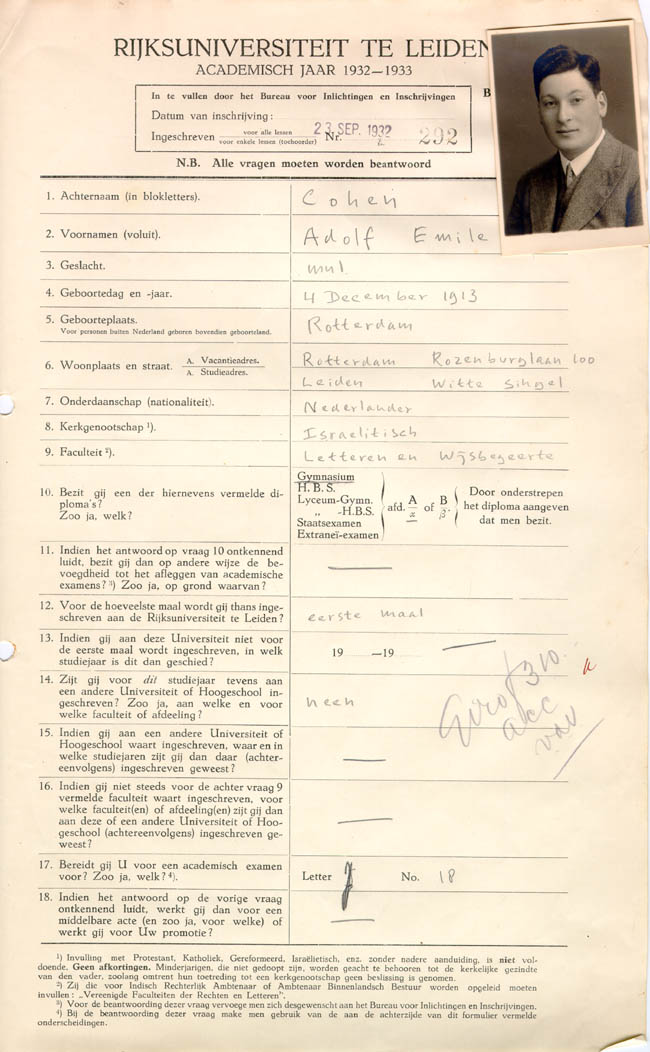 RIJKSUNIVERSITEIT TE LEIDEN
ACADEMISCH JAAR 1932—1933
In te vullen door het Bureau voor Inlichtingen en Inschrijvingen
B
Datum van inschrijving:
Ingeschreven voor alle lessen Nr. 292
voor enkele lessen (toehoorder)
23 SEP. 1932
N.B. Alle vragen moeten worden beantwoord
1. Achternaam (in blokletters). Cohen
2. Voornamen (voluit). Adolf Emile
3. Geslacht. mnl.
4. Geboortedag en -jaar. 4 December 1913
5. Geboorteplaats. Rotterdam
Voor personen buiten Nederland geboren bovendien geboorteland.
6. Woonplaats en straat. A. Vacantieadres. Rotterdam Rozenburglaan 100
A. Studieadres. Leiden Witte Singel
7. Onderdaanschap (nationaliteit). Nederlander
8. Kerkgenootschap ¹). Israelitisch
9. Faculteit ²). Letteren en Wijsbegeerte
10. Bezit gij een der hiernevens vermelde di-
ploma's?
Zoo ja, welk?
Gymnasium
H.B.S.
Lyceum-Gymn.
„ -H.B.S.
Staatsexamen
Extraneï-examen
afd. A/α of B/β.
Door onderstrepen
het diploma aangeven
dat men bezit.
11. Indien het antwoord op vraag 10 ontkennend
luidt, bezit gij dan op andere wijze de be-
voegdheid tot het afleggen van academische
examens? ³) Zoo ja, op grond waarvan?
12. Voor de hoeveelste maal wordt gij thans inge-
schreven aan de Rijksuniversiteit te Leiden? eerste maal
13. Indien gij aan deze Universiteit niet voor
de eerste maal wordt ingeschreven, in welk
studiejaar is dit dan geschied? 19 —19
14. Zijt gij voor dit studiejaar tevens aan
een andere Universiteit of Hoogeschool in-
geschreven? Zoo ja, aan welke en voor
welke faculteit of afdeeling? neen
15. Indien gij aan een andere Universiteit of
Hoogeschool waart ingeschreven, waar en in
welke studiejaren zijt gij dan daar (achter-
eenvolgens) ingeschreven geweest?
16. Indien gij niet steeds voor de achter vraag 9
vermelde faculteit waart ingeschreven, voor
welke faculteit(en) of afdeeling(en) zijt gij dan
aan deze of een andere Universiteit of Hoo-
geschool (achtereenvolgens) ingeschreven ge-
weest?
17. Bereidt gij U voor een academisch examen
voor? Zoo ja, welk? ⁴). Letter J No. 18
18. Indien het antwoord op de vorige vraag
ontkennend luidt, werkt gij dan voor een
middelbare acte (en zoo ja, voor welke) of
werkt gij voor Uw promotie?
¹) Invulling met Protestant, Katholiek, Gereformeerd, Israëlietisch, enz. zonder nadere aanduiding, is niet vol-
doende. Geen afkortingen. Minderjarigen, die niet gedoopt zijn, worden geacht te behooren tot de kerkelijke gezindte
van den vader, zoolang omtrent hun toetreding tot een kerkgenootschap geen beslissing is genomen.
²) Zij die voor Indisch Rechterlijk Ambtenaar of Ambtenaar Binnenlandsch Bestuur worden opgeleid moeten
invullen: „Vereenigde Faculteiten der Rechten en Letteren".
³) Voor de beantwoording dezer vraag vervoege men zich desgewenscht aan het Bureau voor Inlichtingen en Inschrijvingen.
⁴) Bij de beantwoording dezer vraag make men gebruik van de aan de achterzijde van dit formulier vermelde
onderscheidingen.